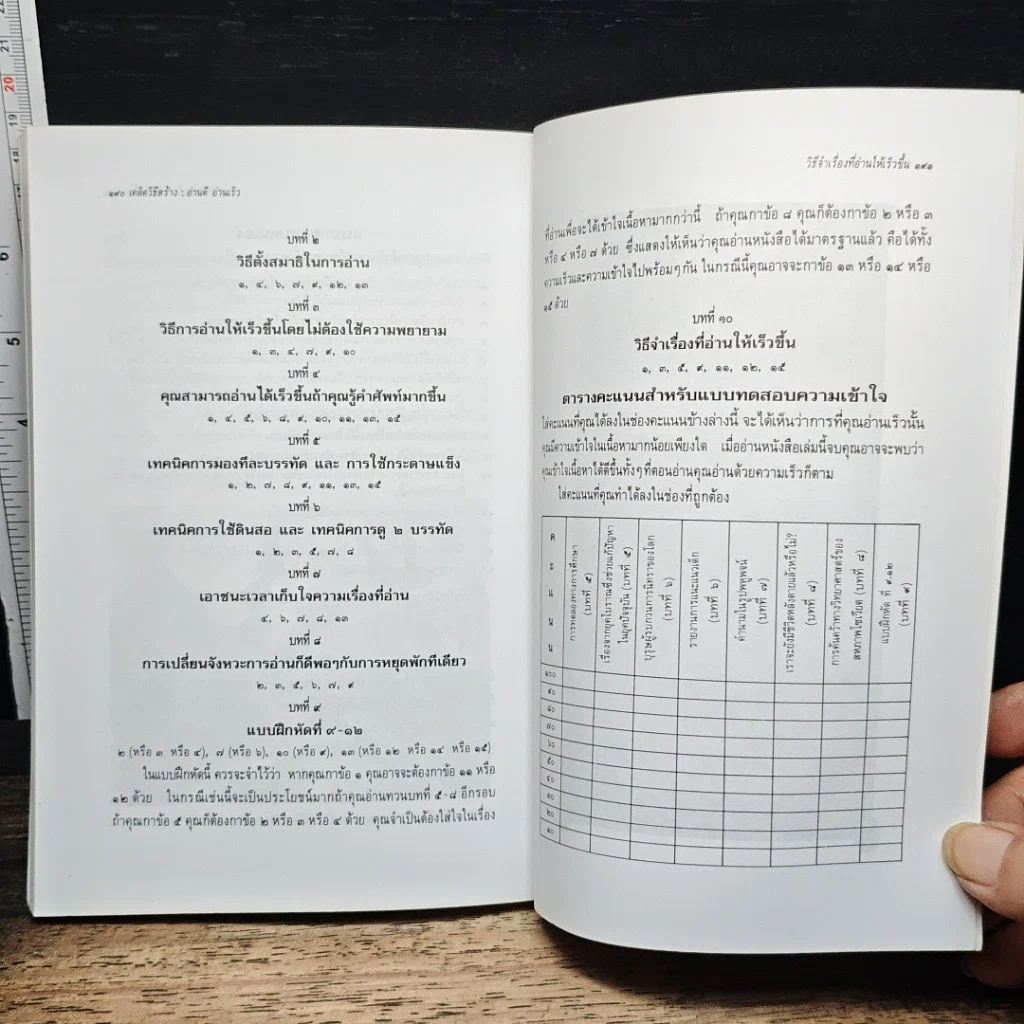 ๑๙๐ เคล็ดวิธีสร้าง : อ่านดี อ่านเร็ว
บทที่ ๒
วิธีตั้งสมาธิในการอ่าน
๑, ๔, ๖, ๗, ๙, ๑๒, ๑๓
บทที่ ๓
วิธีการอ่านให้เร็วขึ้นโดยไม่ต้องใช้ความพยายาม
๑, ๓, ๔, ๗, ๙, ๑๐
บทที่ ๔
คุณสามารถอ่านได้เร็วขึ้นถ้าคุณรู้คำศัพท์มากขึ้น
๑, ๔, ๕, ๖, ๘, ๙, ๑๐, ๑๑, ๑๓, ๑๕
บทที่ ๕
เทคนิคการมองทีละบรรทัด และ การใช้กระดาษแข็ง
๑, ๒, ๗, ๘, ๙, ๑๑, ๑๓, ๑๕
บทที่ ๖
เทคนิคการใช้ดินสอ และ เทคนิคการดู ๒ บรรทัด
๑, ๒, ๓, ๕, ๗, ๘
บทที่ ๗
เอาชนะเวลาเก็บใจความเรื่องที่อ่าน
๔, ๖, ๗, ๘, ๑๓
บทที่ ๘
การเปลี่ยนจังหวะการอ่านก็ดีพอๆกับการหยุดพักทีเดียว
๒, ๓, ๕, ๖, ๗, ๙
บทที่ ๙
แบบฝึกหัดที่ ๙-๑๒
๒ (หรือ ๓ หรือ ๔), ๗ (หรือ ๖), ๑๐ (หรือ ๙), ๑๓ (หรือ ๑๒ หรือ ๑๔ หรือ ๑๕)
ในแบบฝึกหัดนี้ ควรจะจำไว้ว่า หากคุณกาข้อ ๑ คุณอาจจะต้องกาข้อ ๑๑ หรือ
๑๒ ด้วย ในกรณีเช่นนี้จะเป็นประโยชน์มากถ้าคุณอ่านทวนบทที่ ๕-๘ อีกรอบ
ถ้าคุณกาข้อ ๕ คุณก็ต้องกาข้อ ๒ หรือ ๓ หรือ ๔ ด้วย คุณจำเป็นต้องใส่ใจในเรื่อง
วิธีจำเรื่องที่อ่านให้เร็วขึ้น ๑๙๑
ที่อ่านเพื่อจะได้เข้าใจเนื้อหามากกว่านี้ ถ้าคุณกาข้อ ๘ คุณก็ต้องกาข้อ ๒ หรือ ๓
หรือ ๔ หรือ ๗ ด้วย ซึ่งแสดงให้เห็นว่าคุณอ่านหนังสือได้มาตรฐานแล้ว คือได้ทั้ง
ความเร็วและความเข้าใจไปพร้อมๆกัน ในกรณีนี้คุณอาจจะกาข้อ ๑๓ หรือ ๑๔ หรือ
๑๕ ด้วย
บทที่ ๑๐
วิธีจำเรื่องที่อ่านให้เร็วขึ้น
๑, ๓, ๕, ๙, ๑๑, ๑๒, ๑๕
ตารางคะแนนสำหรับแบบทดสอบความเข้าใจ
ใส่คะแนนที่คุณได้ลงในช่องคะแนนข้างล่างนี้ จะได้เห็นว่าการที่คุณอ่านเร็วนั้น
คุณมีความเข้าใจในเนื้อหามากน้อยเพียงใด เมื่ออ่านหนังสือเล่มนี้จบคุณอาจจะพบว่า
คุณเข้าใจเนื้อหาได้ดีขึ้นทั้งๆที่ตอนอ่านคุณอ่านด้วยความเร็วก็ตาม
ใส่คะแนนที่คุณทำได้ลงในช่องที่ถูกต้อง
คะแนน
การทดลองทางการศึกษา
(บทที่ ๕)
เรื่องจากยุคโบราณซึ่งช่วยแก้ปัญหา
ในยุคปัจจุบัน (บทที่ ๕)
บุรุษผู้รบกวนการนิทราของโลก
(บทที่ ๖)
รายงานการแนะแนวเด็ก
(บทที่ ๖)
ตำนานในรูปพจน์
(บทที่ ๗)
เราจะยังมีชีวิตหลังตายแล้วหรือไม่?
(บทที่ ๘)
การค้นคว้าทางวิทยาศาสตร์ของ
สหภาพโซเวียต (บทที่ ๘)
แบบฝึกหัด ที่ ๙.๑๒
(บทที่ ๙)
๑๐๐
๙๐
๘๐
๗๐
๖๐
๕๐
๔๐
๓๐
๒๐
๑๐